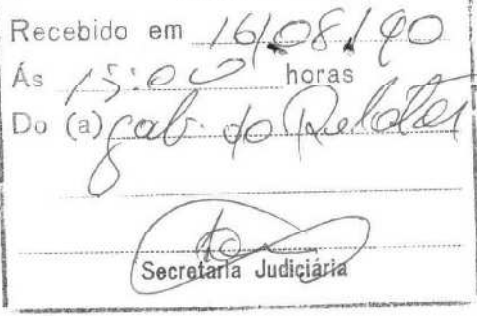 Recebido em 16/08/90
Ás 15:00 horas
Do (a) gab. do Relator
Secretaria Judiciária